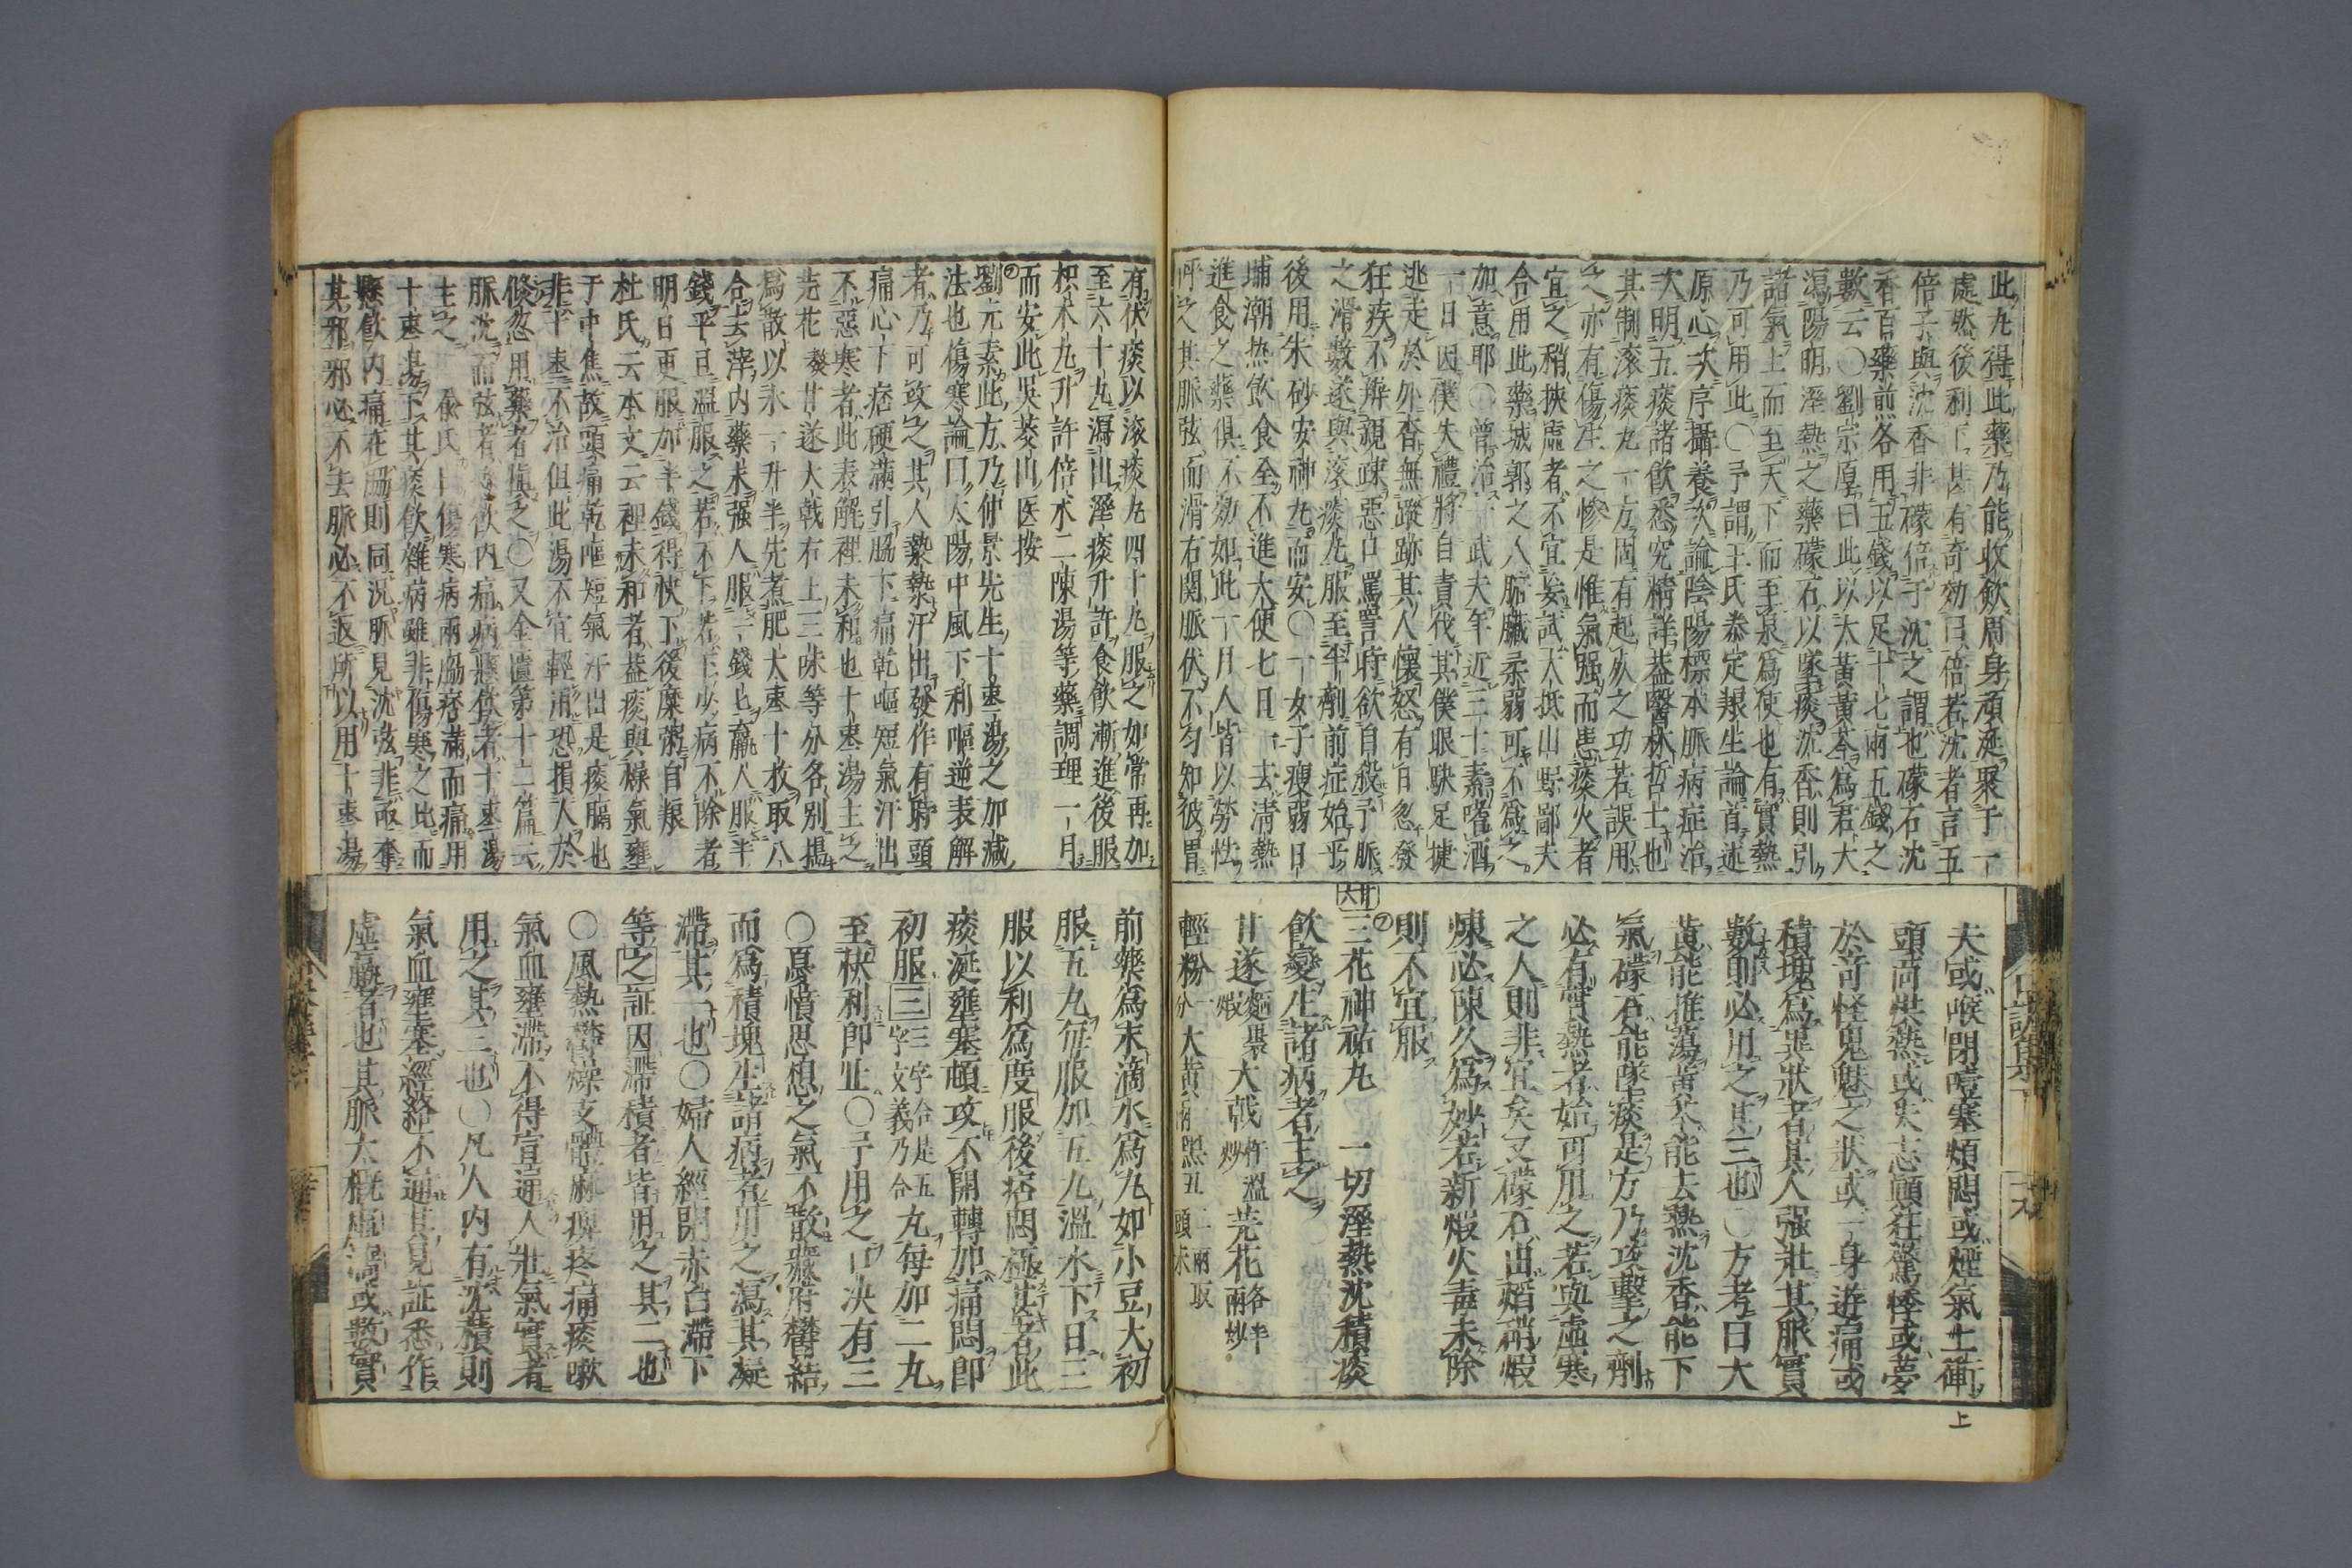 此丸得此藥乃能收飲周身頑涎聚于一
處然後利下甚有奇効曰倍若沈者言五
倍子與沈香非礞倍于沈之謂也礞石沈
香百藥煎各用五錢以足十七兩五錢之
數云〇劉宗厚曰此以大黃黃芩爲君大
瀉陽明溼熱之藥礞石以墜痰沈香則引
諸氣上而至天下而至泉爲使也有實熱
乃可用此〇予謂王氏泰定養生論首述
原心次序攝養次論陰陽標本脉病症治
大明五痰諸飲悉究精詳葢醫林哲士也
其制滚痰丸一方固有起死之功若誤用
之亦有傷生之慘是惟氣强而患痰火者
宜之稍挾虛者不宜妄試大抵山野鄙夫
合用此藥城郭之人腑臟柔弱可不爲之
加意耶〇曾治一武夫年近三十素嗜酒
一日因僕失禮將自責伐其僕眼缺足捷
逃走於外杳無蹤跡其人懷怒有日忽發
狂疾不辨親疎惡口罵詈時欲自殺予脈
之滑數遂與滚痰丸服至半劑前症始平
後用朱砂安神丸而安〇一女子瘦弱日
埔潮热飲食至不進大便七日一去清熱
進食之藥俱不効如此一月人皆以勞怯
呼之其脈弦而滑右関脈伏不匀知彼胃
夫或喉閉噎塞煩悶或煙氣上衝
頭面烘熱或失志顚狂驚悸或夢
於奇怪鬼魅之狀或一身遊痛或
積塊爲異狀者其人强壯其脈實
數則必用之其三也〇方考曰大
黃能推蕩黃芩能去熱沈香能下
氣礞石能墜痰是方乃攻擊之劑
必有實熱者始可用之若與虛寒
之人則非宜矣又礞石出焰硝煅
煉必陳久爲妙若新煅火毒未除
則不宜服
三花神祐丸　一切溼熱沈積痰
飲變生諸病者主之
甘遂麵裹煨大戟炸溫炒芫花各半兩炒
輕粉一分大黃一兩黑丑二兩取頭末
有伏痰以滚痰丸四十丸服之如常再加
至六十丸瀉出溼痰升許食飲漸進後服
枳朮丸升許倍朮二陳湯等藥調理一月
而安此吳茭山医按
劉元素此方乃仲景先生十棗湯之加減
法也傷寒論曰太陽中風下利嘔逆表解
者乃可攻之其人漐漐汗出發作有時頭
痛心下痞硬滿引脇下痛乾嘔短氣汗出
不惡寒者此表解裡未和也十棗湯主之
芫花𤎅甘遂大戟右上三味等分各別搗
爲散以水一升半先煮肥大棗十枚取八
合去滓内藥末强人服一錢匕羸人服半
錢平旦溫服之若不下若下少病不除者
明日更服加半錢得快下後糜粥自養
杜氏云本文云裡未和者葢痰與燥氣壅
于中焦故頭痛乾嘔短氣汗出是痰膈也
非十棗不治但此湯不宜輕用恐損人於
倏忽用藥者慎之〇又金匱第十二篇云
脈沈而弦者懸飲内痛病懸飲者十棗湯
主之　兪氏曰傷寒病兩脇痞滿而痛用
十棗湯下其痰飲雜病雖非傷寒之比而
懸飲内痛在脇則同況脈見沈弦非亟奪
其邪邪必不去脈必不返所以用十棗湯
前藥爲末滴水爲丸如小豆大初
服五丸每服加五丸溫水下日三
服以利爲度服後痞悶極甚者此
痰涎壅塞頓攻不開轉加痛悶即
初服三三字合是五字文義乃合丸每加二丸
至快利即止〇予用之口决有三
〇憂憤思想之氣不散臟府欝結
而爲積塊生諸病者用之瀉其凝
滯其一也〇婦人經閉赤白滯下
等之証因滯積者皆用之其二也
〇風熱欝燥支體麻痺疼痛痰嗽
氣血壅滯不得宣通人壯氣實者
用之其三也〇凡人内有沈積則
氣血壅塞經絡不通其見証悉作
虛羸者也其脈大槪虛濇或數實
上